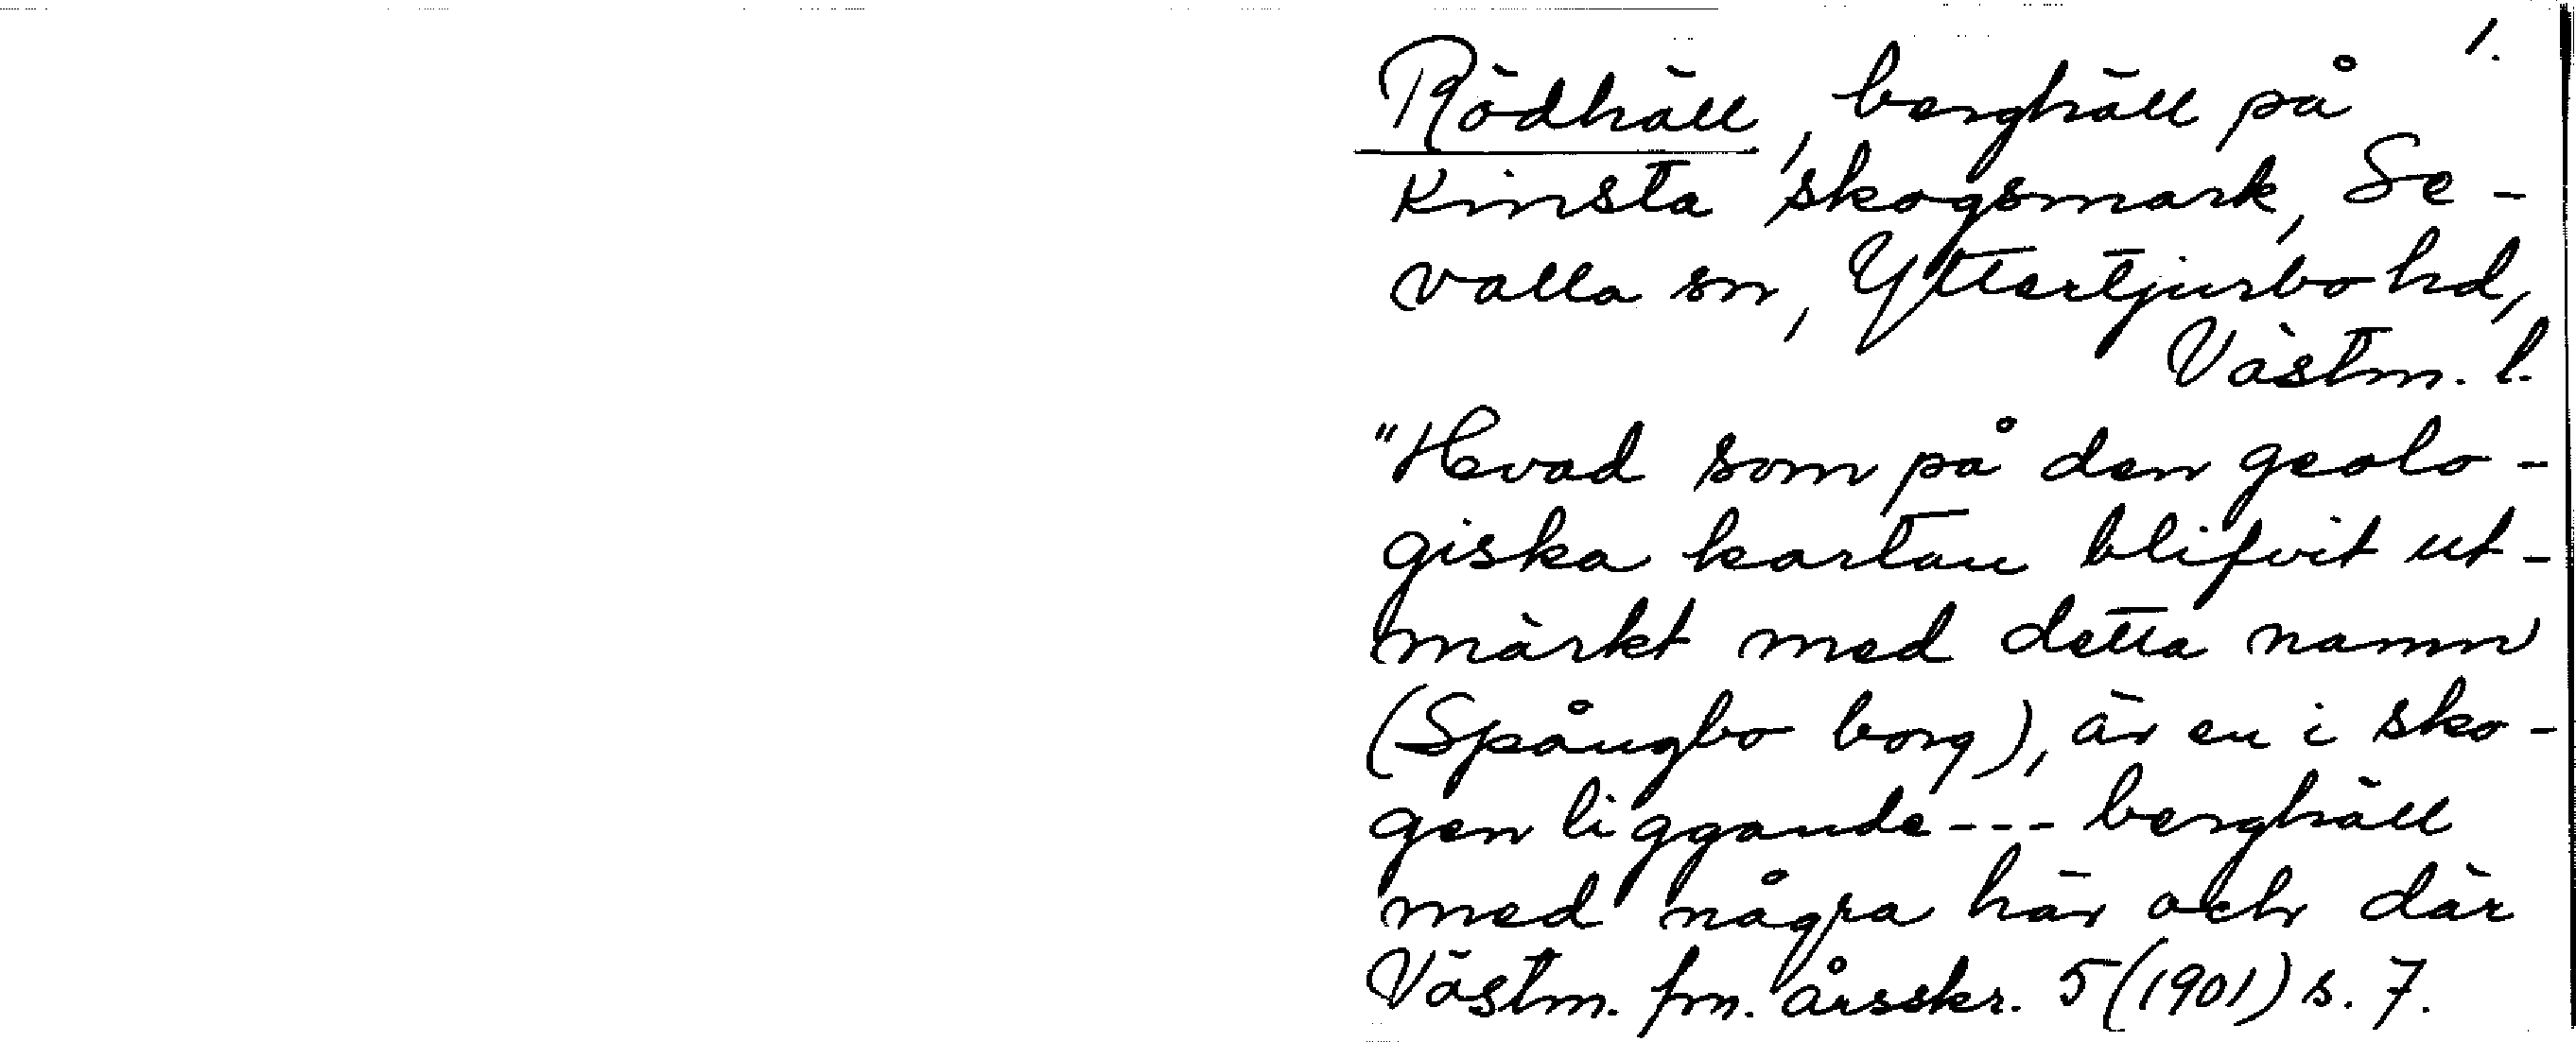 1.
Rödhäll, berghäll på
Kinsta skogsmark, Se-
valla sn, Yttertjurbo hd,
Västm. l.
"Hvad som på den geolo-
giska kartan blifvit ut-
märkt med detta namn
(Spångbo borg), är en i sko-
gen liggande --- berghäll
med några här och där
Västm. fm. årsskr. 5 (1901) s. 7.